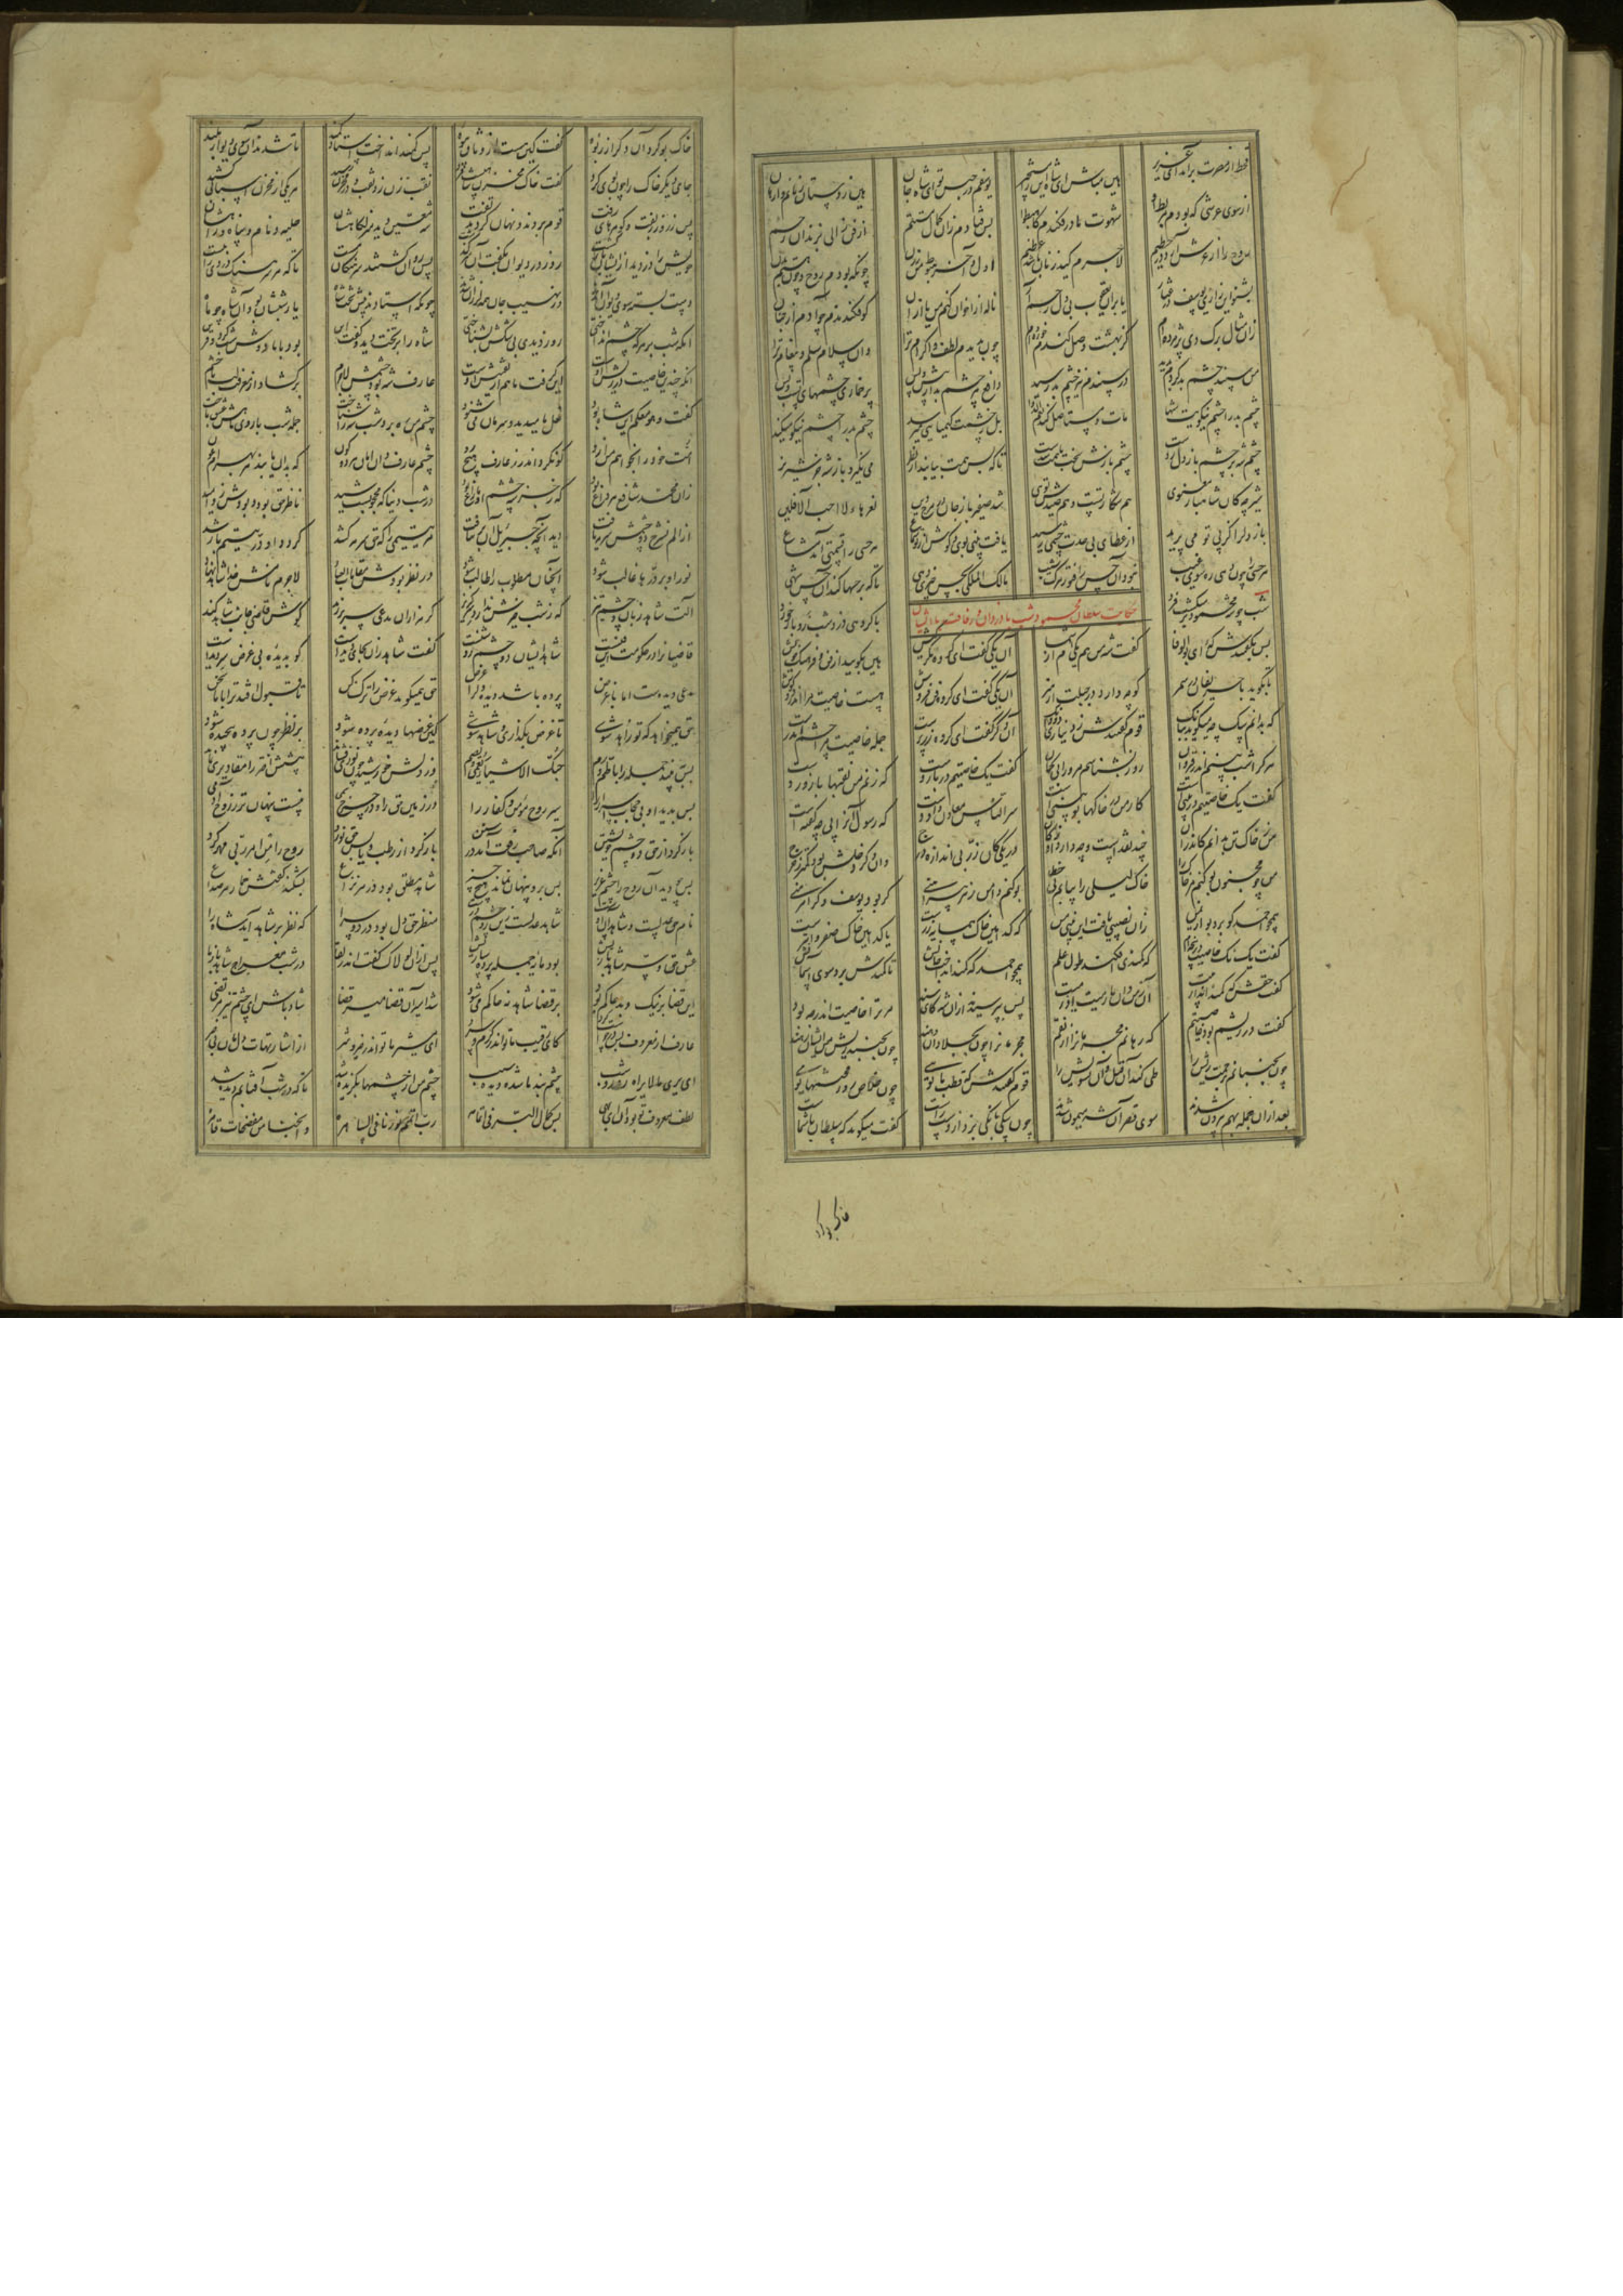 قحط از مصرت برآمد ای عزیز هین مباش ای شاه این را مستجیز یوسفم در حبس تو ای شاه جان هین ز دستان زنانم وارهان
از سوی عرشی که بودم مربط او شهوت مادر فکندم کاهبطوا پس فتادم زان کمال مستتم از فن زالی بزندان رحم
روح را از عرش آرد در حطیم لاجرم کید زنان باشد عظیم اول و آخر هبوط من ز زن چونکه بودم روح و چون گشتم بدن
بشنو این زاری یوسف در عثار یا بران یعقوب بی دل رحم آر ناله از اخوان کنم من یا زنان کو فکندندم چو آدم از جنان
زان مثال برگ دی پژمرده ام کز بهشت وصل گندم خورده ام چون بدیدم لطف و اکرام ترا وان سلام سلم و پیغام ترا
من سپند چشم بد کردم پدید در سپندم نیز چشم بد رسید دافع هر چشم بد از پیش و پس پر خماری چشمهای تست و بس
چشم بد را چشم نیکویت شها مات و مستاصل کند نعم الدوا بل ز چشمت کیمیاها میرسد چشم بد را چشم نیکو میکند
چشم شه بر چشم باز دل زدست چشم بازش سخت با همت شدست تا که بس همت بیابد از نظر می نگیرد باز شه جز شیر نر
شیر چه کان شاهباز معنوی هم شکار تست و هم صیدش توی شد صفیر باز جان در مرج دین نعرهاء لا احب الآفلین
باز دل را کز پی تو می پرید از عطای بی حدت چشمی رسید یافت بینی بوی و گوش از تو سماع هر حسی را قسمتی آمد مشاع
هر حسی را چون دهی ره سوی غیب نبود آن حس را فتور مرگ و شیب مالک الملکی بحس چیزی دهی تا که بر حسها کند آن حس شهی
حکایت سلطان محمود و شب با دزدان و رفاقت با ایشان
شب چو شه محمود بر میگشت فرد با گروهی دزد شب رو باز خورد
پس بگفتندش که ای بوالوفا گفت شه من هم یکی ام از شما آن یکی گفت ای گروه مکر کیش هین بگویید از فن و فرهنگ خویش
تا بگوید با حریفان در سمر کو چه دارد در جبلت از هنر آن یکی گفت ای گروه فن فروش هست خاصیت مرا اندر دو گوش
که بدانم سگ چه میگوید ببانگ قوم گفتندش ز دیناری دو دانگ آن دگر گفت ای گروه زر پرست جمله خاصیت مرا چشم اندرست
هر کرا شب بینم اندر قیروان روز بشناسم مر ورا بی گمان گفت یک خاصیتم در بازوست که زنم من نقبها با زور دست
گفت یک خاصیتم در بینی است کار من در خاکها بو بینی است سر الناس معادن داد دست که رسول آنرا پی چه گفته است
من ز خاک تن بدانم کاندران چند نقد است و چه دارد او ز کان در یکی کان زر بی اندازه درج وان دگر دخلش بود کمتر ز خرج
من چو مجنون بو کنم من خاک را خاک لیلی را بیابم بی خطا بو کنم دانم ز هر پیراهنی گر بود یوسف و گر آهرمنی
همچو احمد کو برد بو از یمن زان نصیبی یافت این بینی من که که این خاک همسایه زر است یا که این خاک صفر و ابتر است
گفت یک نک خاصیت در پنجه ام که کمندی افکنم طول علم همچو احمد که کمند انداخت جانش تا کمندش برد سوی آسمانش
گفت حقش کای کمند انداز بیت آن ز من دان ما رمیت اذ رمیت پس بپرسیدند ازان شه کای سند مر ترا خاصیت اندر چه بود
گفت در ریشم بود خاصیتم که رهانم مجرمانرا از نقم مجرمانرا چون بجلادان دهند چون بجنبد ریش من ایشان رهند
چون بجنبانم برحمت ریش را طی کنند آن قتل و آن تشویش را قوم گفتندش که قطب ما توی چون خلاص روز محنتها توی
بعد ازان جمله بهم بیرون شدند سوی قصر آن شه میمون شدند چون سگی بانگی بزد از دست راست گفت میگوید که سلطان با شماست
خاک بو کرد
خاک بو کرد آن دگر از ربوه گفت کین هست از وثاق بیوه پس کمند انداخت استاد کمند تا شدند آن سوی دیوار بلند
جای دیگر خاک را چون بوی کرد گفت خاک مخزن شاهیست فرد نقب زن زد نقب و در مخزن رسید هر یکی از مخزن اسبابی کشید
پس زر و زربفت و گوهرهای زفت قوم بردند و نهان کردند تفت شه معین دید منزلگاهشان حلیه و نام و پناه و راهشان
خویش را دزدید از ایشان بازگشت روز در دیوان بگفت آن سرگذشت پس روان گشتند سرهنگان مست تا که هر سرهنگ دزدی را ببست
دست بسته سوی دیوان آمدند وز نهیب جان همه لرزان شدند چونکه استادند پیش تخت شاه یار شبشان بود آن شاه چو ماه
آنکه شب بر هر که چشم انداختی روز دیدی بی شکش بشناختی شاه را بر تخت دید و گفت این بود با ما دوش شب گرد و قرین
آنکه چندین خاصیت در ریش اوست این گرفت ما هم از تفتیش اوست عارف شه بود چشمش لاجرم بر گشاد از معرفت لب با حشم
گفت و هو معکم این شاه بود فعل ما میدید و سر ما می شنود چشم من ره برد شب شه را شناخت جمله شب با روی ماهش عشق باخت
امت خود را بخواهم من ازو کو نگرداند ز عارف هیچ رو چشم عارف دان امان هر دو کون که بدان یابید هر بهرام عون
زان محمد شافع هر داغ بود که ز جز حق چشم او مازاغ بود در شب دنیا که محجوبست شید ناظر حق بود و زو بودش امید
از الم نشرح دو چشمش سرمه یافت دید آنچه جبرئیل آن بر نتافت هر یتیمی را که حق سرمه کشد گردد او در یتیم با رشد
نور او بر درها غالب شود آنچنان مطلوب را طالب شود در نظر بودش مقامات العباد لاجرم نامش خدا شاهد نهاد
آلت شاهد زبان و چشم تیز که ز شب خیزش ندارد سر گریز گر هزاران مدعی سر بر زند گوش قاضی جانب شاهد کند
قاضیانرا در حکومت این فنست شاهد ایشان دو چشم روشنست گفت شاهد زان بجای دیده است کو بدیده بی غرض سر دیده است
مدعی دیده است اما با غرض پرده باشد دیده دل را غرض حق همیگوید غرض را ترک کن تا قبول افتد ترا با ما سخن
حق همیخواهد که تو زاهد شوی تا غرض بگذاری و شاهد شوی کین غرضها دیده را پرده شود بر نظر چون پرده پیچیده شود
پس نبیند جمله را با طم و رم حبک الاشیاء یعمی و یصم در دلش خورشید چون نوری فشاند پیشش اختر را مقادیری نماند
پس بدید او بی حجاب اسرار را سیر روح مؤمن و کفار را در زمین حق را و در چرخ سمی نیست پنهان تر ز روح آدمی
باز کرد از حق دو چشم خویشتن باز کرد از رطب و یابس حق نورد روح را من امر ربی مهر کرد
پس چو دید آن روح را چشم عزیز پس برو پنهان نماند هیچ چیز شاهد مطلق بود در هر نزاع بشکند گفتش خمار هر صداع
نام حق عدلست و شاهد آن او شاهد عدلست زین رو چشم دوست منظر حق دل بود در دو سرا که نظر بر شاهد آید شاه را
عشق حق و سر شاهد بازیش بود مایه جمله پرده سازیش پس ازان لولاک گفت اندر لقا در شب معراج شاهد باز ما
این قضا بر نیک و بد حاکم بود بر قضا شاهد نه حاکم می شود شد اسیر آن قضا میر قضا شاد باش ای چشم تیز مرتضی
عارف از معروف بس درخواست کرد کای رقیب ما تو اندر گرم و سرد ای مشیر ما تو اندر خیر و شر از اشارتهات دلمان بی خبر
ای یرانا لا نراه روز و شب چشم بند ما شده دید سبب چشم من از چشمها بگزیده شد تا که در شب آفتابم دیده شد
لطف معروف تو بود آن ای بهی پس کمال البر فی اتمامه رب اتمم نورنا فی الساهره وانجنا من مفضحات قاهره